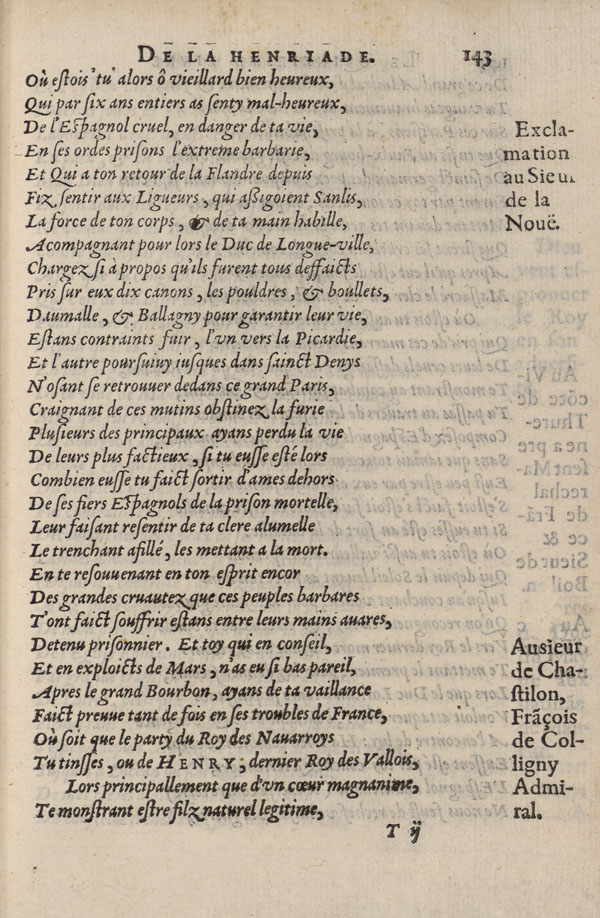 DE LA HENRIADE. 143
Où estois tu alors ô vieillard bien heureux,
Qui par six ans entiers as senty mal-heureux,
De l'Espagnol cruel, en danger de ta vie,
En ses ordes prisons l'extreme barbarie,
Et Qui a ton retour de la Flandre depuis
Fiz sentir aux Ligueurs, qui assigoient Sanlis,
La force de ton corps, & de ta main habille,
Acompagnant pour lors le Duc de Longue-ville,
Chargez si à propos qu'ils furent tous deffaicts
Pris sur eux dix canons, les pouldres, & boullets,
Daumalle, & Ballagny pour garantir leur vie,
Estans contraints fuir, l'vn vers la Picardie,
Et l'autre poursuiuy iusques dans sainct Denys
N'osant se retrouuer dedans ce grand Paris,
Craignant de ces mutins obstinez la furie
Plusieurs des principaux ayans perdu la vie
De leurs plus factieux, si tu eusse esté lors
Combien eusse tu faict sortir d'ames dehors
De ses fiers Espagnols de la prison mortelle,
Leur faisant resentir de ta clere alumelle
Le trenchant afillé, les mettant a la mort.
En te resouuenant en ton esprit encor
Des grandes cruautez que ces peuples barbares
T'ont faict souffrir estans entre leurs mains auares,
Detenu prisonnier. Et toy qui en conseil,
Et en exploicts de Mars, n'as eu si bas pareil,
Apres le grand Bourbon, ayans de ta vaillance
Faict preuue tant de fois en ses troubles de France,
Où soit que le party du Roy des Nauarroys
Tu tinsses, ou de HENRY, dernier Roy des Vallois,
Lors principallement que d'vn cœur magnanime,
Te monstrant estre filz naturel legitime,
T ij
Excla-
mation
au Sieur
de la
Nouë.
Au sieur
de Cha-
stilon,
Frãçois
de Col-
ligny
Admi-
ral.